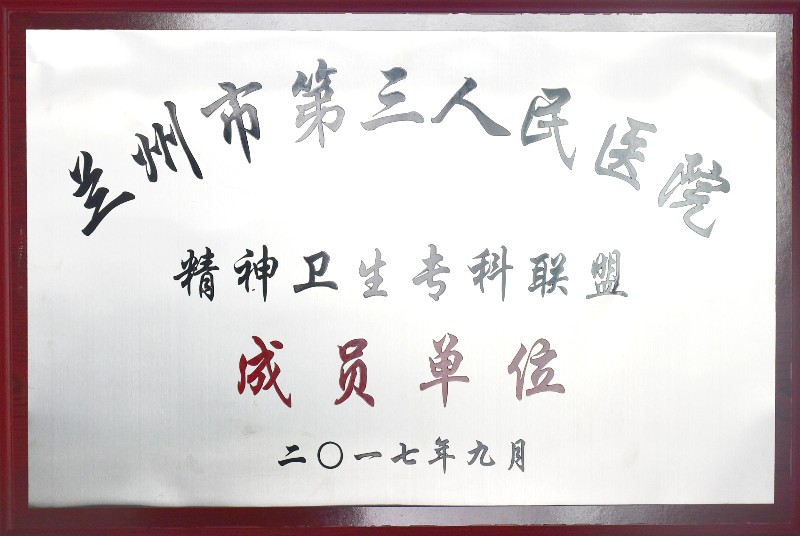 兰州市第三人民医院
精神卫生专科联盟
成员单位
二〇一七年九月